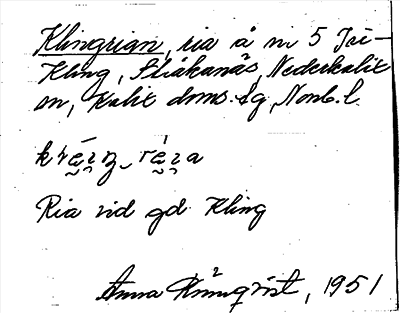 Klingrian, ria å nr 5 Isi-
Kling, Stråkanäs, Nederkalix
sn, Kalix doms. sg, Norrb. l.
Ria vid gd. Kling
Anna Rönnqvist, 1951